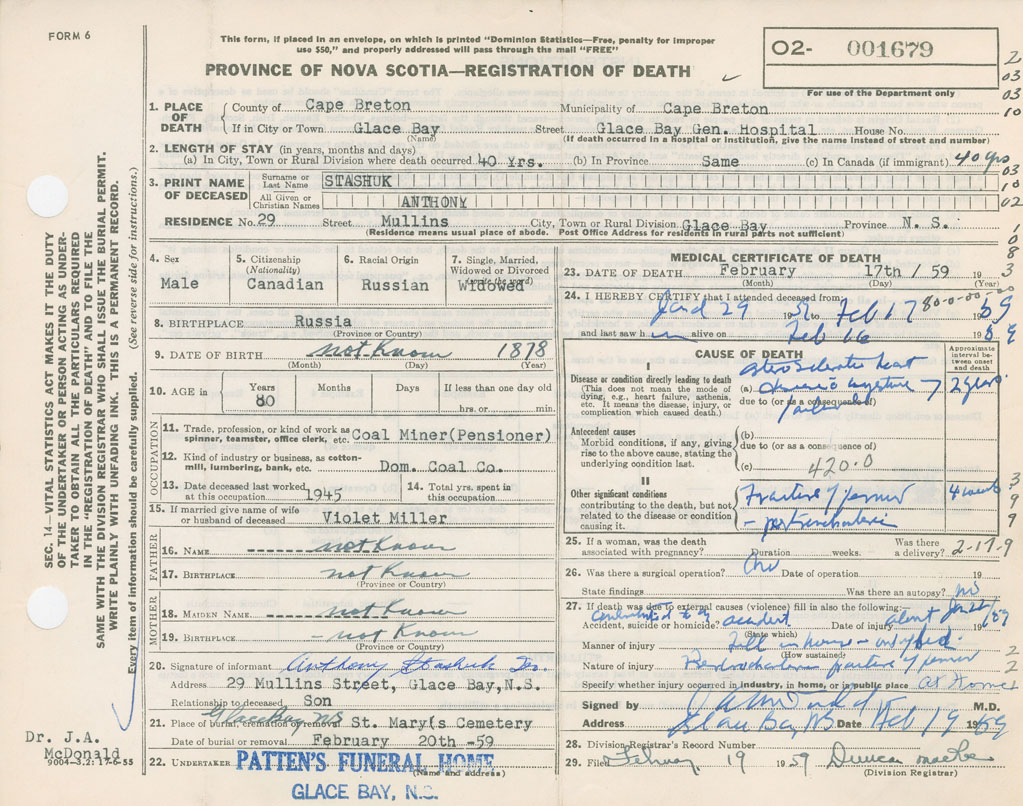 FORM 6
This form, if placed in an envelope, on which is printed "Dominion Statistics—Free, penalty for improper
use $50," and properly addressed will pass through the mail "FREE"
PROVINCE OF NOVA SCOTIA—REGISTRATION OF DEATH
O2- 001679
For use of the Department only
2
03
03
10
1. PLACE OF DEATH
County of Cape Breton Municipality of Cape Breton
If in City or Town Glace Bay Street Glace Bay Gen. Hospital House No.
(Name) (If death occurred in a hospital or institution, give the name instead of street and number)
2. LENGTH OF STAY (in years, months and days)
(a) In City, Town or Rural Division where death occurred 40 Yrs. (b) In Province Same (c) In Canada (if immigrant) 40 yrs
03
3. PRINT NAME OF DECEASED
Surname or Last Name STASHUK
10
All Given or Christian Names ANTHONY
02
RESIDENCE No. 29 Street Mullins City, Town or Rural Division Glace Bay Province N. S.
(Residence means usual place of abode. Post Office Address for residents in rural parts not sufficient)
1
0
8
3
4. Sex
Male
5. Citizenship (Nationality)
Canadian
6. Racial Origin
Russian
7. Single, Married, Widowed or Divorced
Widowed
8. BIRTHPLACE Russia
(Province or Country)
9. DATE OF BIRTH not Know 1878
(Month) (Day) (Year)
10. AGE in Years Months Days If less than one day old
80 hrs. or min.
OCCUPATION
11. Trade, profession, or kind of work as
spinner, teamster, office clerk, etc. Coal Miner(Pensioner)
12. Kind of industry or business, as cotton-
mill, lumbering, bank, etc. Dom. Coal Co.
13. Date deceased last worked
at this occupation 1945
14. Total yrs. spent in
this occupation
15. If married give name of wife
or husband of deceased Violet Miller
FATHER
16. NAME not Know
17. BIRTHPLACE not Know
(Province or Country)
MOTHER
18. MAIDEN NAME not Know
19. BIRTHPLACE - not Know
(Province or Country)
20. Signature of informant Anthony Stashuk
Address 29 Mullins Street, Glace Bay,N.S.
Relationship to deceased Son
Glace Bay NS
21. Place of burial, cremation or removal St. Mary(s Cemetery
Date of burial or removal February 20th -59
22. UNDERTAKER PATTEN'S FUNERAL HOME
(Name and address)
GLACE BAY, N.S.
MEDICAL CERTIFICATE OF DEATH
23. DATE OF DEATH February 17th / 59 19
(Month) (Day) (Year)
80-0-00-00-00
24. I HEREBY CERTIFY that I attended deceased from
29 to Feb 17 59
and last saw h alive on Feb 16 19 59
CAUSE OF DEATH
Approximate interval between onset and death
I
Disease or condition directly leading to death
(This does not mean the mode of
dying, e.g., heart failure, asthenia,
etc. It means the disease, injury, or
complication which caused death.)
(a) heart 2 years
due to (or as a consequence of)
failure
Antecedent causes
Morbid conditions, if any, giving
rise to the above cause, stating the
underlying condition last.
(b)
due to (or as a consequence of)
(c) 420.0
II
Other significant conditions
contributing to the death, but not
related to the disease or condition
causing it.
Fracture of femur 4 weeks
3
9
9
25. If a woman, was the death
associated with pregnancy? Duration weeks. Was there
a delivery? 2-17-9
26. Was there a surgical operation? Date of operation 19
State findings Was there an autopsy? no
27. If death was due to external causes (violence) fill in also the following:—
Accident, suicide or homicide? accident Date of injury about 19 59
(State which)
Manner of injury Fell in home
(How sustained)
Nature of injury fracture of femur
2
2
Specify whether injury occurred in industry, in home, or in public place At Home
Signed by M.D.
Address Glace Bay NS Date Feb 19 1959
28. Division Registrar's Record Number
29. Filed February 19 1959 Duncan
(Division Registrar)
SEC. 14—VITAL STATISTICS ACT MAKES IT THE DUTY
OF THE UNDERTAKER OR PERSON ACTING AS UNDER-
TAKER TO OBTAIN ALL THE PARTICULARS REQUIRED
IN THE "REGISTRATION OF DEATH" AND TO FILE THE
SAME WITH THE DIVISION REGISTRAR WHO SHALL ISSUE THE BURIAL PERMIT.
WRITE PLAINLY WITH UNFADING INK. THIS IS A PERMANENT RECORD.
Every item of information should be carefully supplied. (See reverse side for instructions.)
Dr. J.A.
McDonald
9004-3.2: 17-6-55